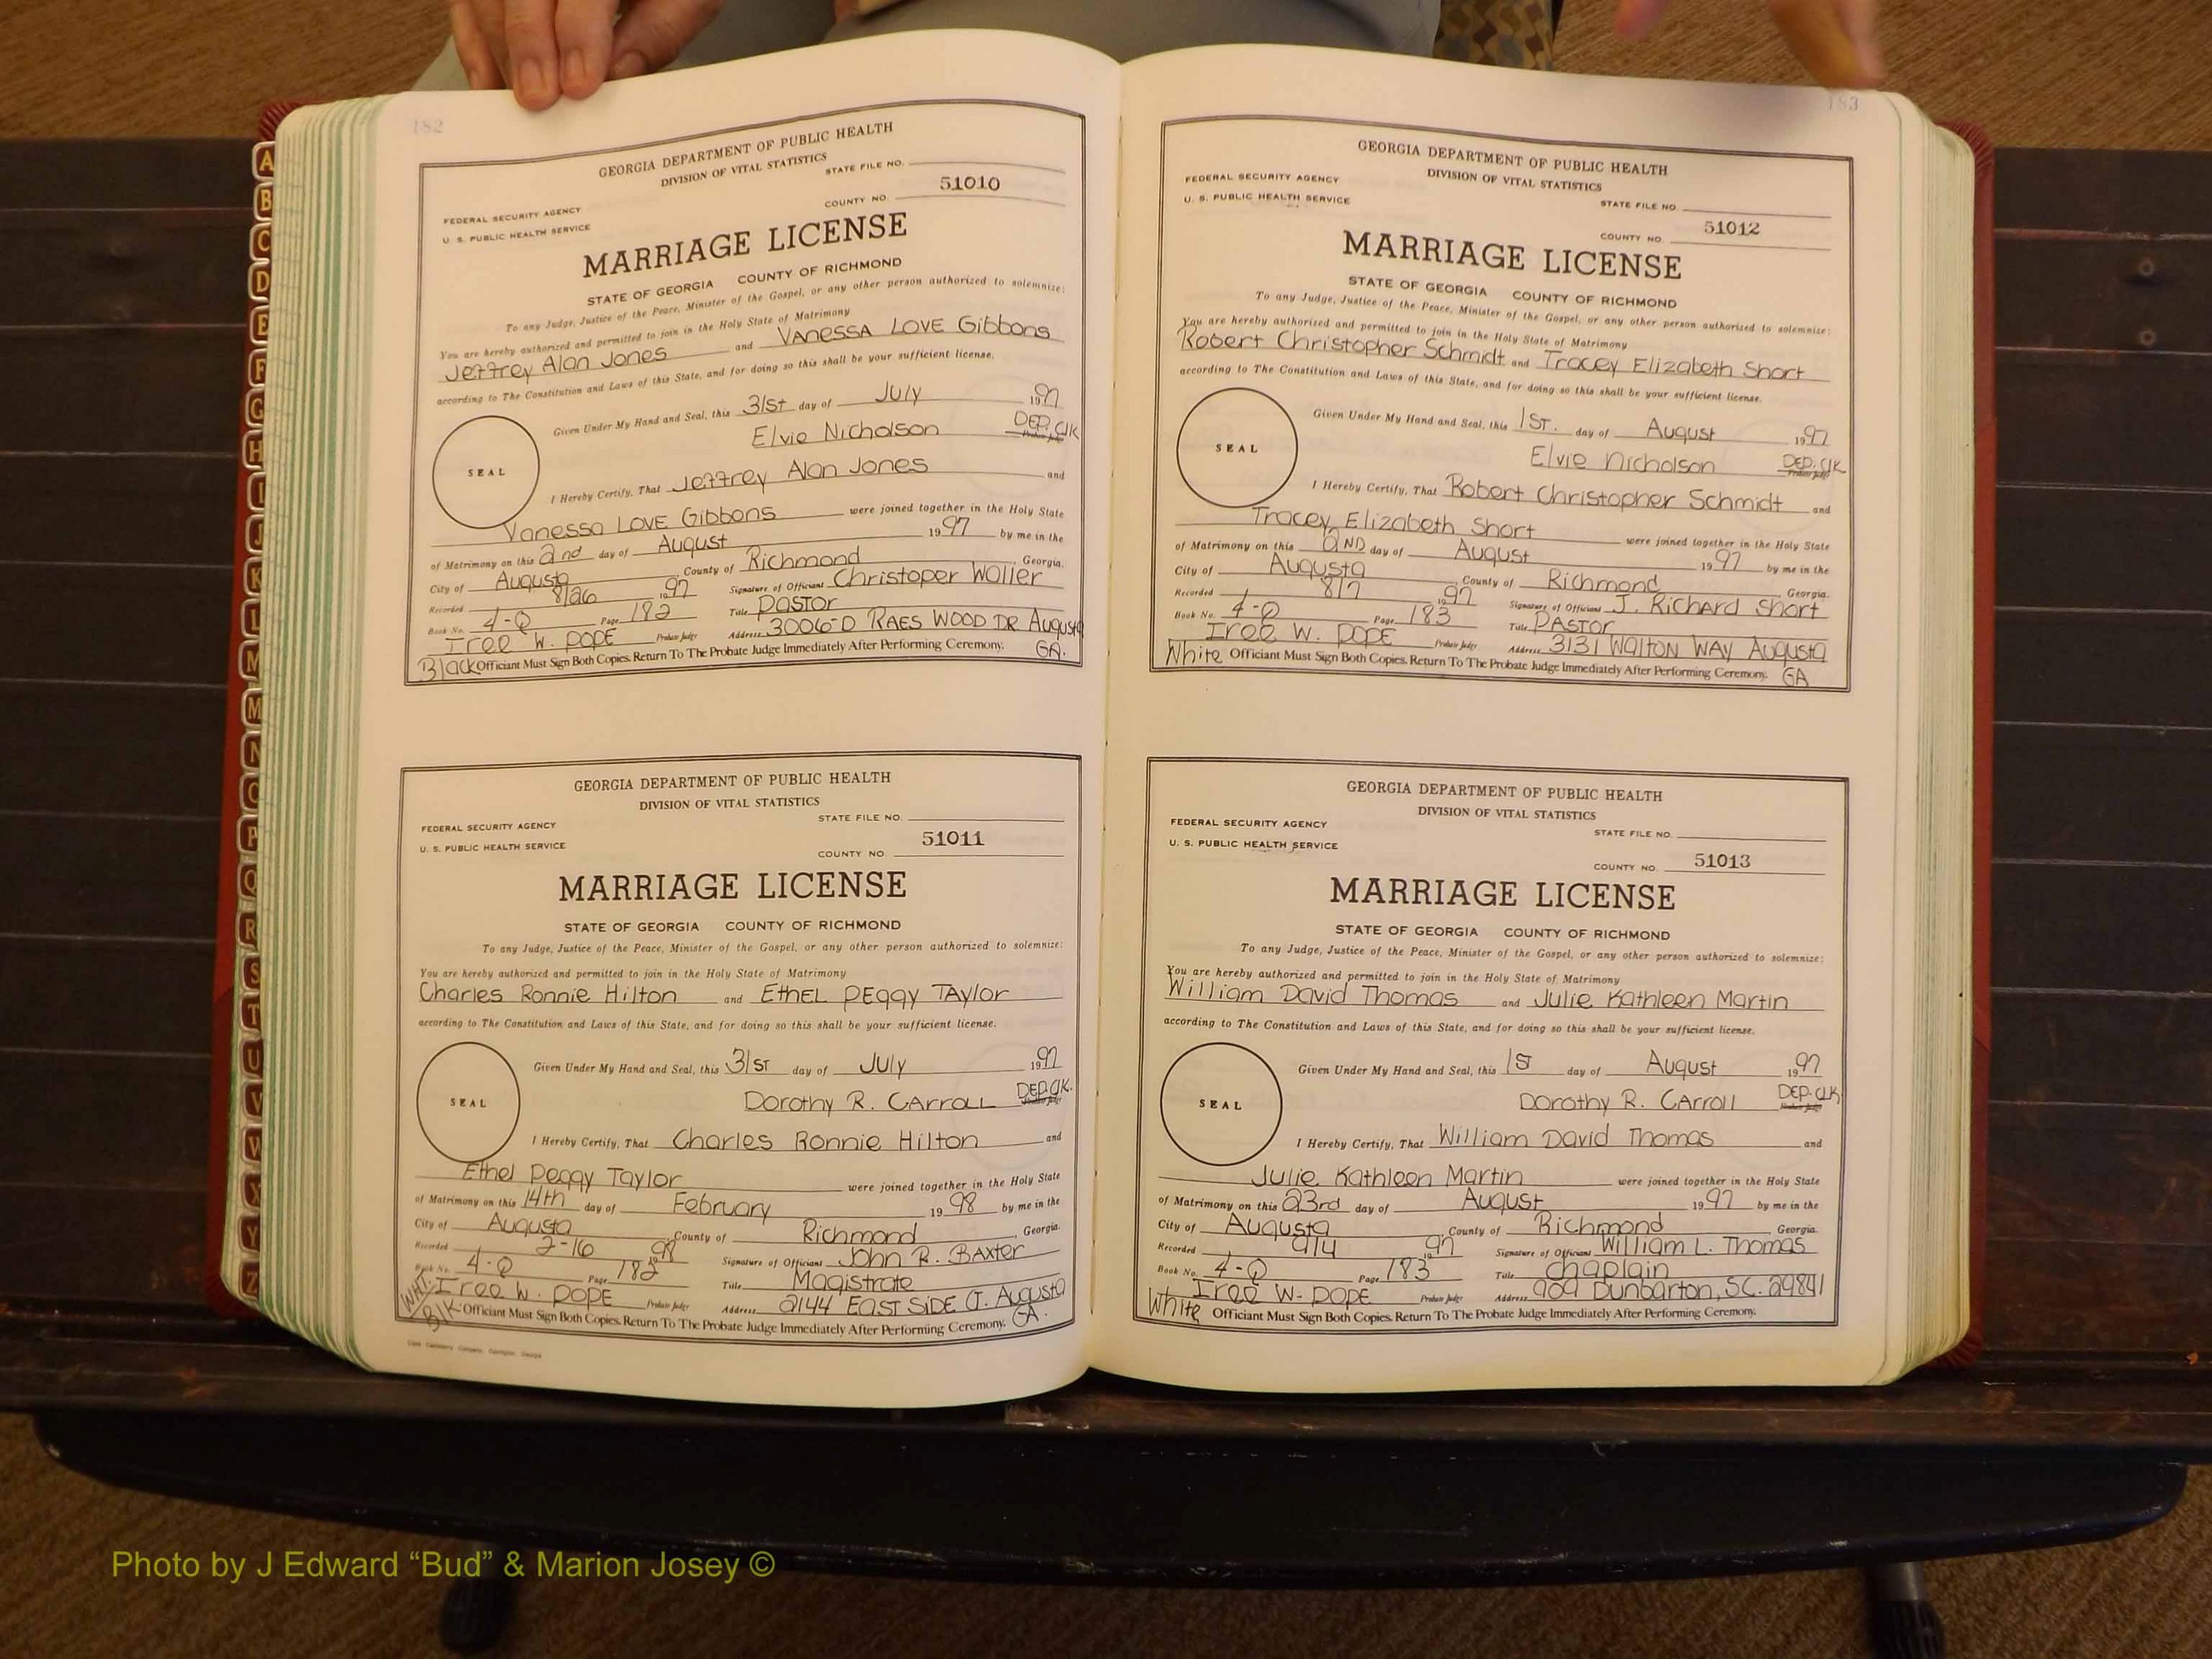 182
GEORGIA DEPARTMENT OF PUBLIC HEALTH
DIVISION OF VITAL STATISTICS
STATE FILE NO.
FEDERAL SECURITY AGENCY
U. S. PUBLIC HEALTH SERVICE
COUNTY NO. 51010
MARRIAGE LICENSE
STATE OF GEORGIA COUNTY OF RICHMOND
To any Judge, Justice of the Peace, Minister of the Gospel, or any other person authorized to solemnize:
You are hereby authorized and permitted to join in the Holy State of Matrimony
Jeffrey Alan Jones and VANESSA LOVE Gibbons
according to The Constitution and Laws of this State, and for doing so this shall be your sufficient license.
Given Under My Hand and Seal, this 31st day of July 1997
SEAL
Elvie Nicholson DEP. Clk
Probate Judge
I Hereby Certify, That Jeffrey Alan Jones and
Vanessa LOVE Gibbons were joined together in the Holy State
of Matrimony on this 2nd day of August 1997 by me in the
City of Augusta, County of Richmond, Georgia.
Recorded 8/26 1997 Signature of Officiant Christoper Waller
Book No. 4-Q Page 182 Title PASTOR
Iree W. POPE Probate Judge Address 3006-D RAES WOOD DR Augusta
Black Officiant Must Sign Both Copies. Return To The Probate Judge Immediately After Performing Ceremony. GA.
GEORGIA DEPARTMENT OF PUBLIC HEALTH
DIVISION OF VITAL STATISTICS
STATE FILE NO.
FEDERAL SECURITY AGENCY
U. S. PUBLIC HEALTH SERVICE
COUNTY NO. 51011
MARRIAGE LICENSE
STATE OF GEORGIA COUNTY OF RICHMOND
To any Judge, Justice of the Peace, Minister of the Gospel, or any other person authorized to solemnize:
You are hereby authorized and permitted to join in the Holy State of Matrimony
Charles Ronnie Hilton and EthEL PEggy TAylor
according to The Constitution and Laws of this State, and for doing so this shall be your sufficient license.
Given Under My Hand and Seal, this 31ST day of July 1997
SEAL
Dorothy R. CArroLL DEP. Clk.
Probate Judge
I Hereby Certify, That Charles Ronnie Hilton and
Ethel Peggy Taylor were joined together in the Holy State
of Matrimony on this 14th day of February 1998 by me in the
City of Augusta, County of Richmond, Georgia.
Recorded 2-16 Signature of Officiant John R. BAxter
Book No. 4-Q Page 182 Title Magistrate
WHT. Iree W. POPE Probate Judge Address 2144 EAST SiDE CT. Augusta
Blk. Officiant Must Sign Both Copies. Return To The Probate Judge Immediately After Performing Ceremony. GA.
183
GEORGIA DEPARTMENT OF PUBLIC HEALTH
DIVISION OF VITAL STATISTICS
FEDERAL SECURITY AGENCY
U. S. PUBLIC HEALTH SERVICE
STATE FILE NO.
COUNTY NO. 51012
MARRIAGE LICENSE
STATE OF GEORGIA COUNTY OF RICHMOND
To any Judge, Justice of the Peace, Minister of the Gospel, or any other person authorized to solemnize:
You are hereby authorized and permitted to join in the Holy State of Matrimony
Robert Christopher Schmidt and Tracey Elizabeth Short
according to The Constitution and Laws of this State, and for doing so this shall be your sufficient license.
Given Under My Hand and Seal, this 1ST. day of August 1997
SEAL
Elvie Nicholson DEP. Clk
Probate Judge
I Hereby Certify, That Robert Christopher Schmidt and
Tracey Elizabeth Short were joined together in the Holy State
of Matrimony on this 2ND day of August 1997 by me in the
City of Augusta, County of Richmond, Georgia.
Recorded 8/7 1997 Signature of Officiant J. Richard Short
Book No. 4-Q Page 183 Title PASTOR
Iree W. POPE Probate Judge Address 3131 WALTON WAY Augusta
White Officiant Must Sign Both Copies. Return To The Probate Judge Immediately After Performing Ceremony. GA
GEORGIA DEPARTMENT OF PUBLIC HEALTH
DIVISION OF VITAL STATISTICS
FEDERAL SECURITY AGENCY
U. S. PUBLIC HEALTH SERVICE
STATE FILE NO.
COUNTY NO. 51013
MARRIAGE LICENSE
STATE OF GEORGIA COUNTY OF RICHMOND
To any Judge, Justice of the Peace, Minister of the Gospel, or any other person authorized to solemnize:
You are hereby authorized and permitted to join in the Holy State of Matrimony
William David Thomas and Julie Kathleen Martin
according to The Constitution and Laws of this State, and for doing so this shall be your sufficient license.
Given Under My Hand and Seal, this 1st day of August 1997
SEAL
Dorothy R. CArroll DEP. Clk
Probate Judge
I Hereby Certify, That William David Thomas and
Julie Kathleen Martin were joined together in the Holy State
of Matrimony on this 23rd day of August 1997 by me in the
City of Augusta, County of Richmond, Georgia.
Recorded 9/4 1997 Signature of Officiant William L. Thomas
Book No. 4-Q Page 183 Title Chaplain
Iree W. POPE Probate Judge Address 909 Dunbarton, SC. 29841
White Officiant Must Sign Both Copies. Return To The Probate Judge Immediately After Performing Ceremony.
A
B
C
D
E
F
G
H
I
J
K
L
M
M
N
O
P
Q
R
S
T
U
V
W
X
Y
Z
Photo by J Edward “Bud” & Marion Josey ©